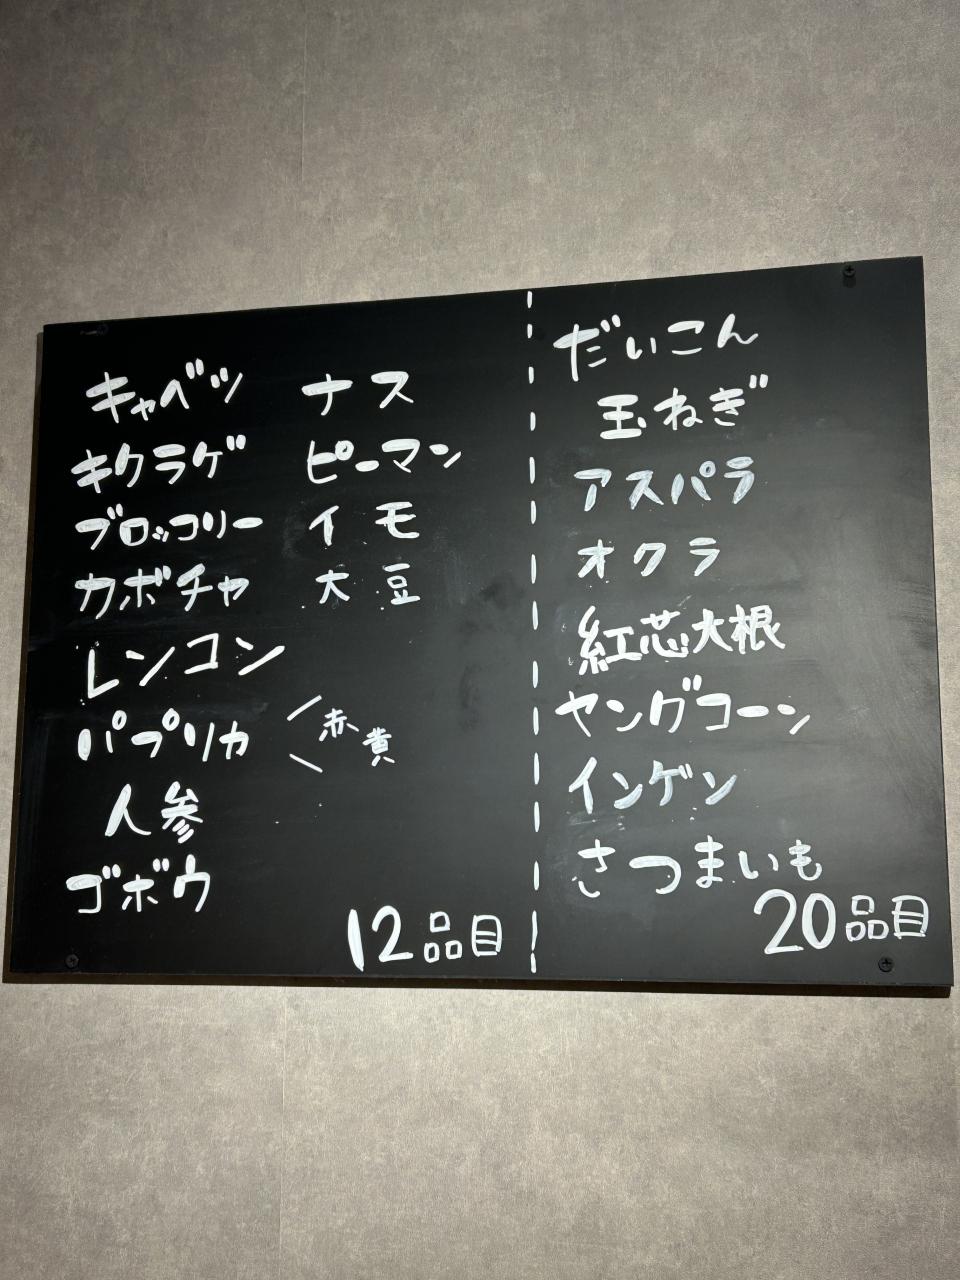 キャベツ ナス
キクラゲ ピーマン
ブロッコリー イモ
カボチャ 大豆
レンコン
パプリカ 赤
黄
人参
ゴボウ
12品目
だいこん
玉ねぎ
アスパラ
オクラ
紅芯大根
ヤングコーン
インゲン
さつまいも
20品目